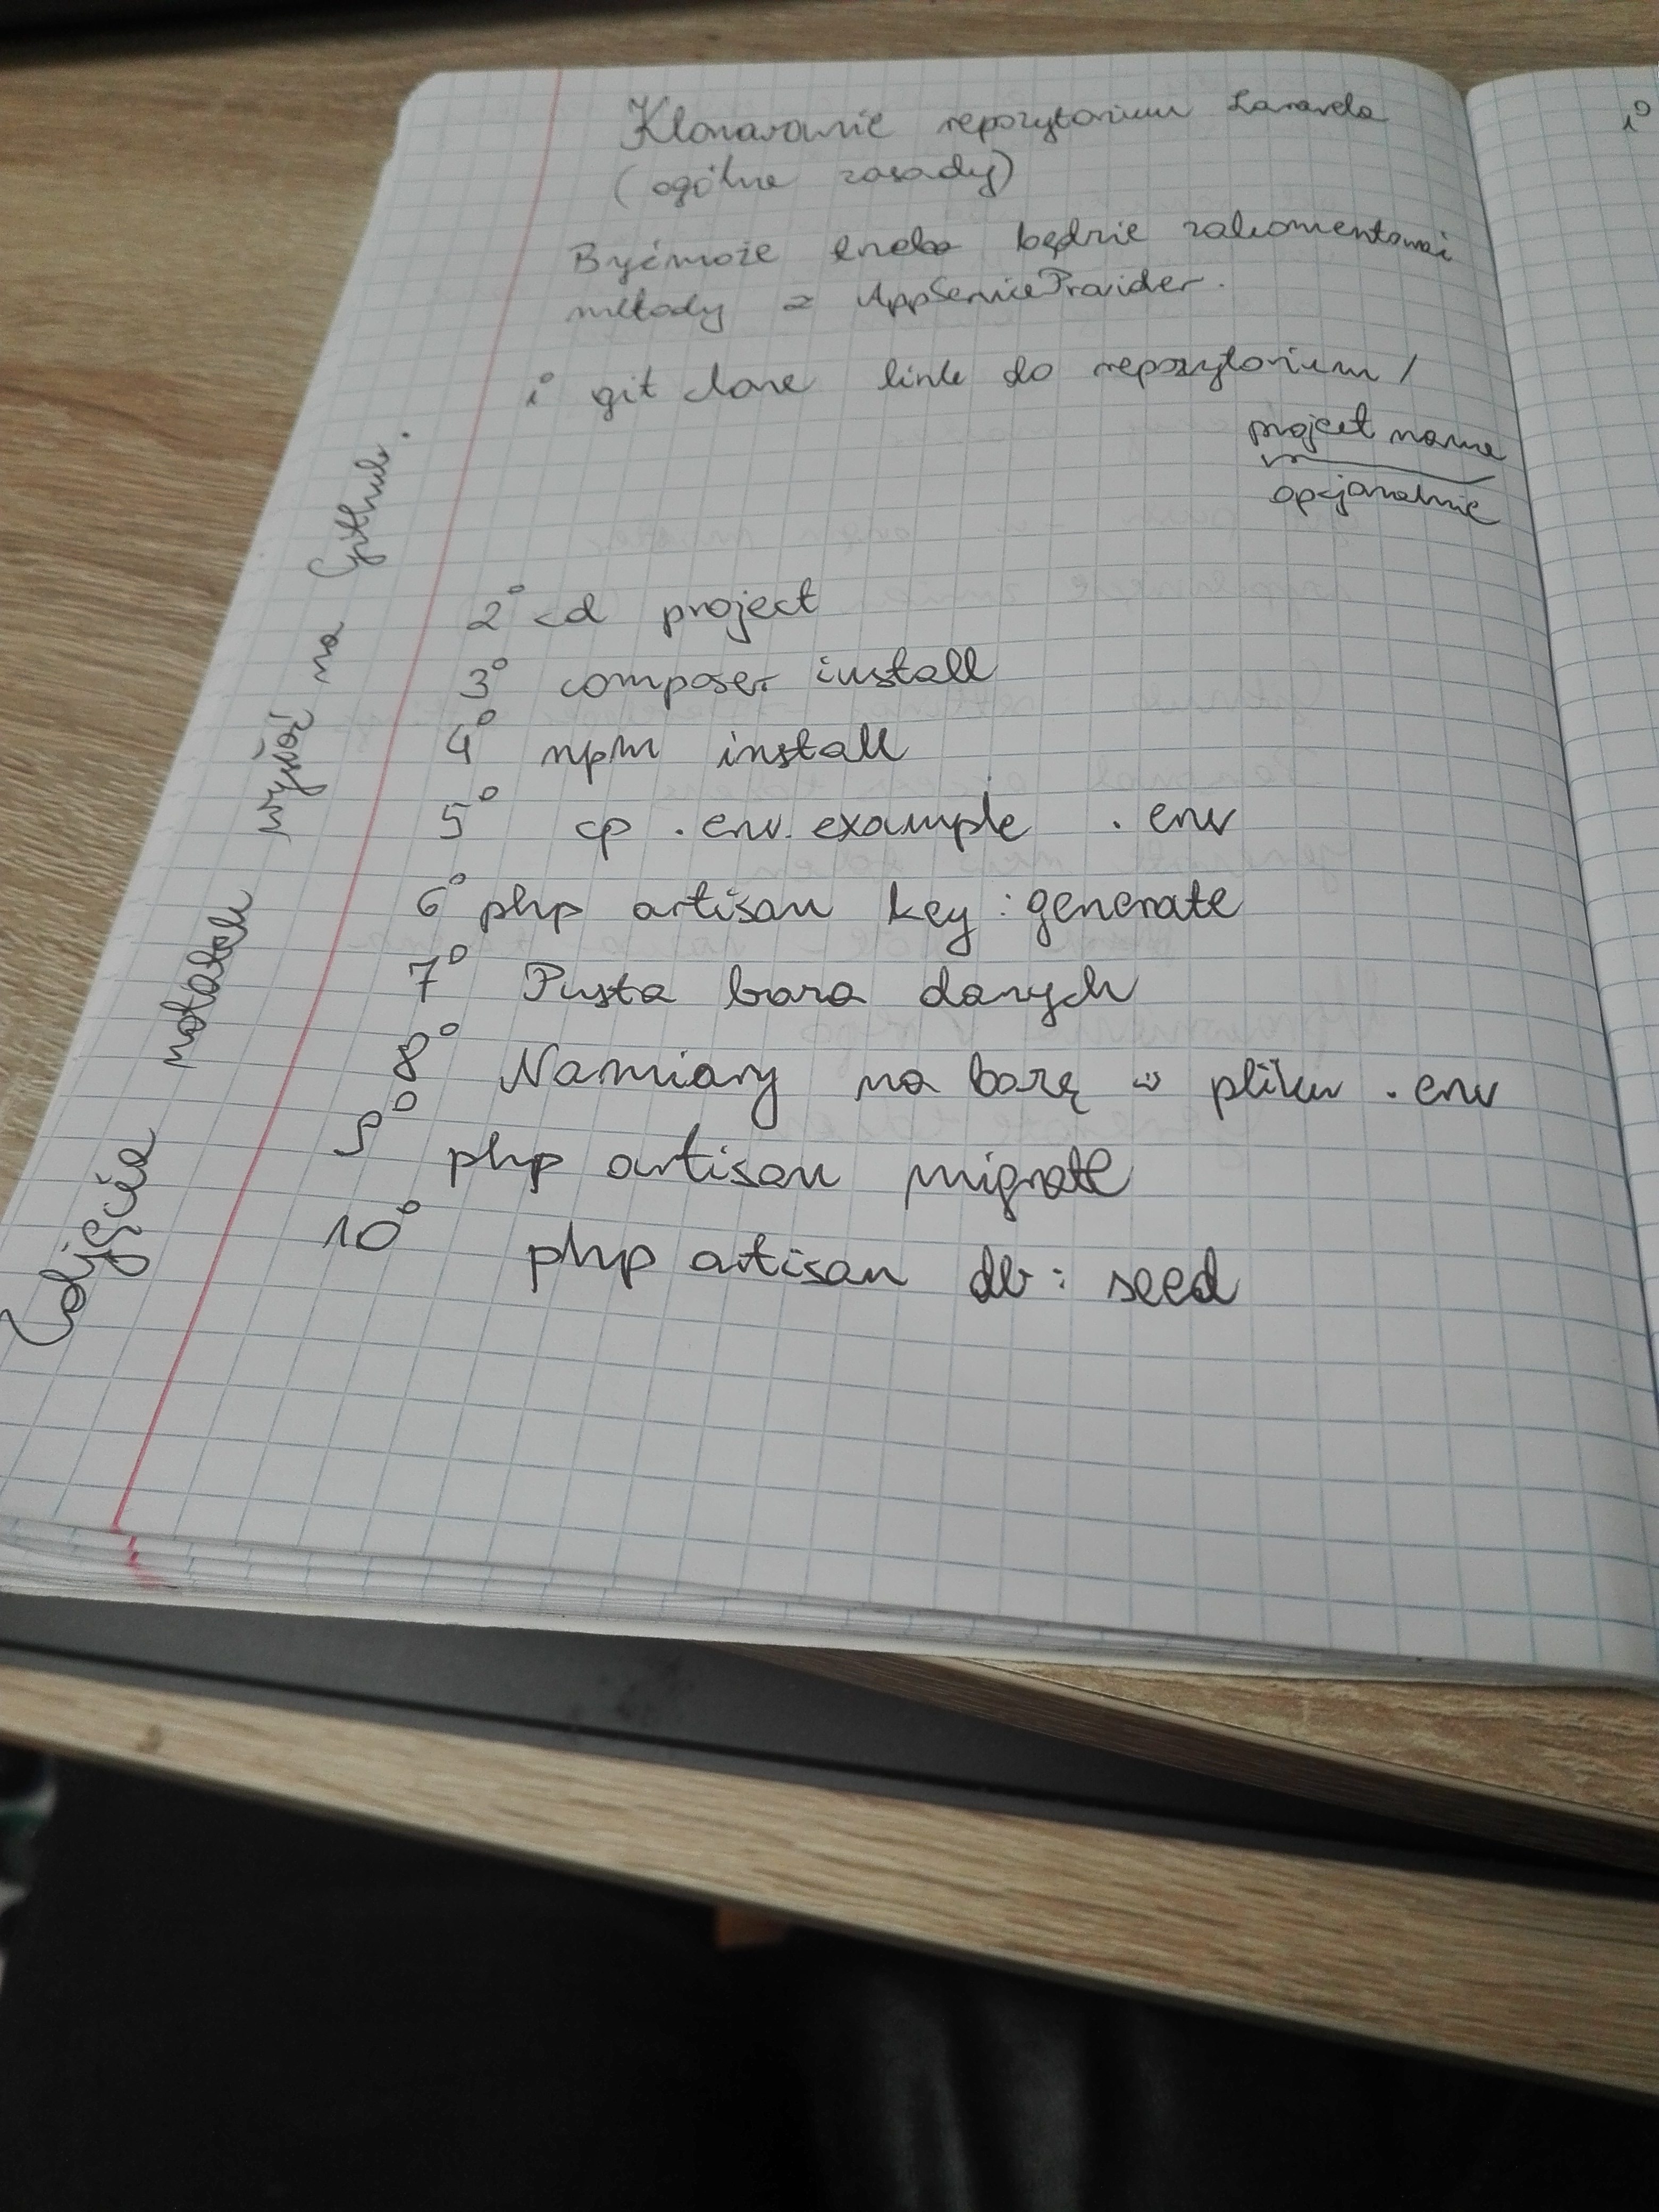 Klonowanie repozytorium Laravela
(ogólne zasady)
Być może trzeba będzie zakomentować
metody z AppServiceProvider.
1° git clone link do repozytorium /
project name
opcjonalnie
2° cd project
3° composer install
4° npm install
5° cp .env.example .env
6° php artisan key:generate
7° Pusta baza danych
8° Namiary na bazę w pliku .env
9° php artisan migrate
10° php artisan db:seed
Zdjęcia notatek wysłać na Github.
1°